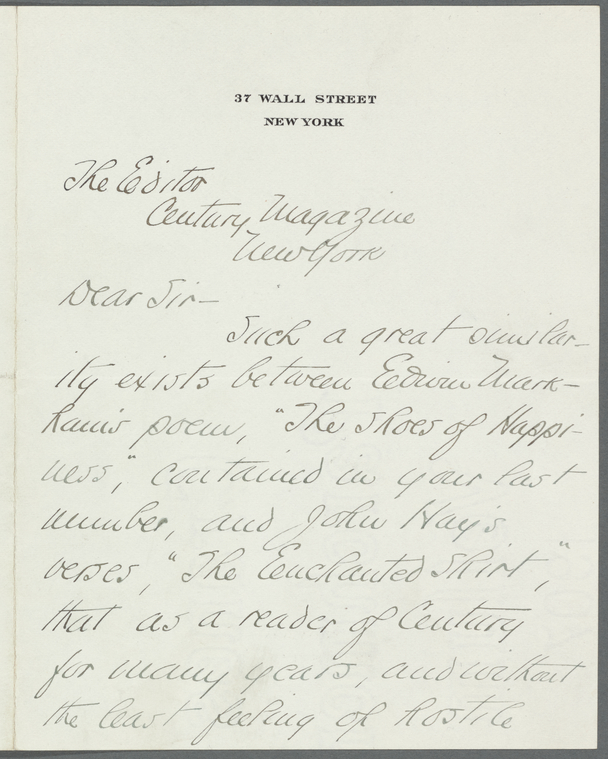 37 WALL STREET
NEW YORK
The Editor
Century Magazine
New York
Dear Sir—
Such a great similar-
ity exists between Edwin Mark-
ham's poem, "The Shoes of Happi-
ness", contained in your last
number, and John Hay's
verses, "The Enchanted Shirt",
that as a reader of Century
for many years, and without
the least feeling of hostile